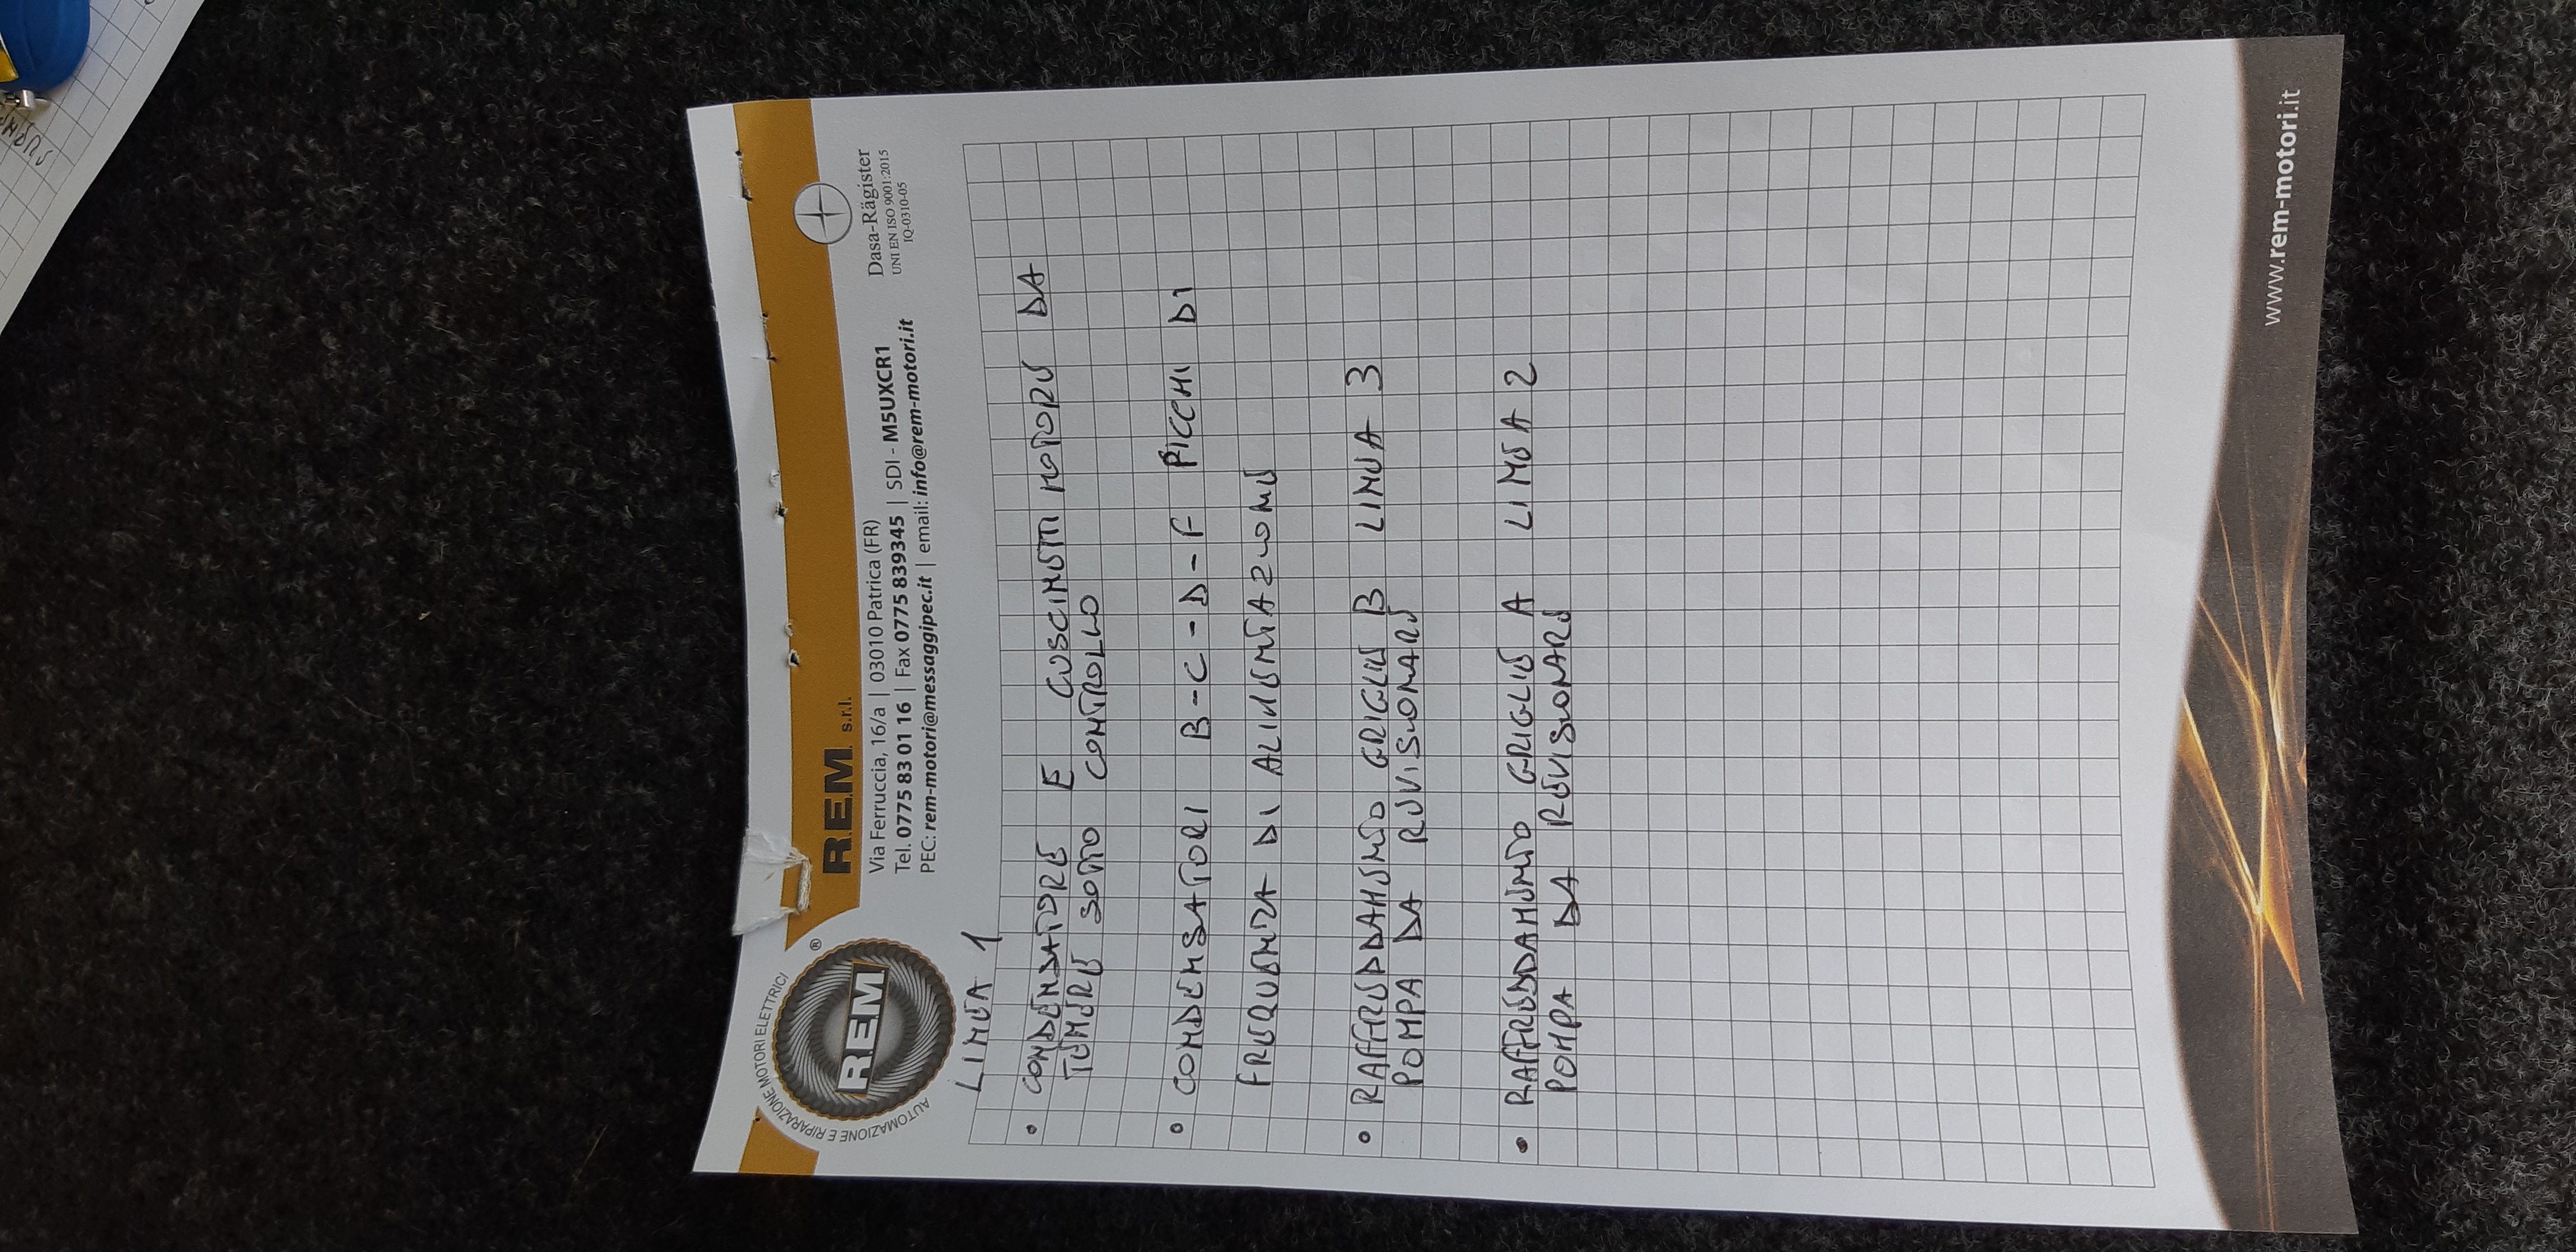 AUTOMAZIONE E RIPARAZIONE MOTORI ELETTRICI
REM
®
R.E.M. s.r.l.
Via Ferruccia, 16/a | 03010 Patrica (FR)
Tel. 0775 83 01 16 | Fax 0775 839345 | SDI - M5UXCR1
PEC: rem-motori@messaggipec.it | email: info@rem-motori.it
Dasa-Rägister
UNI EN ISO 9001:2015
IQ-0310-05
LINEA 1
• CONDENSATORE E CUSCINETTI MOTORE DA
TENERE SOTTO CONTROLLO
• CONDENSATORI B-C-D-F PICCHI DI
FREQUENZA DI ALIMENTAZIONE
• RAFFREDDAMENTO GRIGLIE B LINEA 3
POMPA DA REVISIONARE
• RAFFREDDAMENTO GRIGLIE A LINEA 2
POMPA DA REVISIONARE
www.rem-motori.it